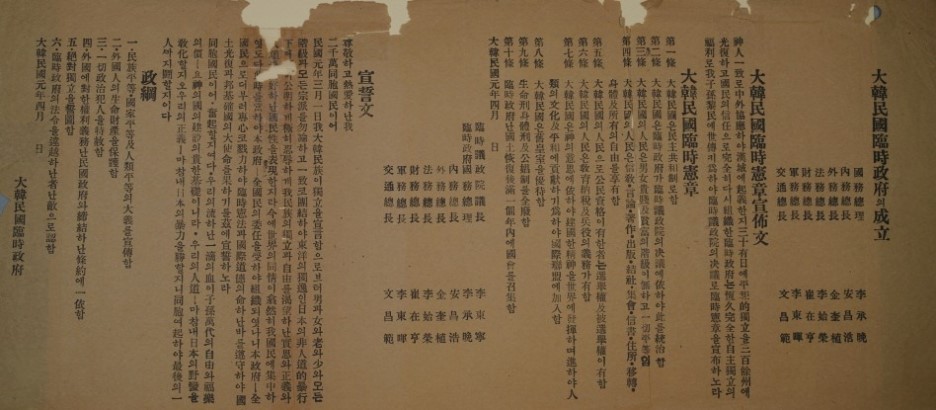 大韓民國臨時政府의成立
國務總理 李承晩
內務總長 安昌浩
外務總長 金奎植
法務總長 李始榮
財務總長 崔在亨
軍務總長 李東暉
交通總長 文昌範
大韓民國臨時憲章宣佈文
神人一致로中外協應하야漢城에起義한지三十有日에平和的獨立을三百餘州에
光復하고國民의信任으로完全히다시組織한臨時政府는恒久完全한自主獨立의
福利로我子孫黎民에世傳키爲하야臨時議政院의決議로臨時憲章을宣布하노라
大韓民國臨時憲章
第一條 大韓民國은民主共和制로함
第二條 大韓民國은臨時政府가臨時議政院의決議에依하야此를統治함
第三條 大韓民國의人民은男女貴賤及貧富의階級이無하고一切平等임
第四條 大韓民國의人民은信敎・言論・著作・出版・結社・集會・信書・住所・移轉・
身體及所有의自由를享有함
第五條 大韓民國의人民으로公民資格이有한者는選擧權及被選擧權이有함
第六條 大韓民國의人民은敎育納稅及兵役의義務가有함
大韓民國은神의意思에依하야建國한精神을世界에發揮하며進하야人
類의文化及平和에貢獻하기爲하야國際聯盟에加入함
第八條 大韓民國은舊皇室을優待함
第九條 生命刑身體刑及公娼制를全廢함
第十條 臨時政府난國土恢復後滿一個年內에國會를召集함
大韓民國元年四月 日
臨時議政院議長 李東寧
臨時政府國務總理 李承晩
內務總長 安昌浩
外務總長 金奎植
法務總長 李始榮
財務總長 崔在亨
軍務總長 李東暉
交通總長 文昌範
宣誓文
尊敬하고熱愛하난我
二千萬同胞國民이여
民國元年三月一日我大韓民族이獨立을宣言함으로브터男과女와老와少와모든
階級과모든宗派를勿論하고一致코團結하야東洋의獨逸인日本의非人道的暴行
下에 公明하게極히忍辱하게我民族의獨立과自由를渴望하난實思와正義와
表現한지라今에世界의同情이翕然히我國民에集中하
時를當하야 政府一全國民의委任을受하야組織되엿나니本政府一全
國民으로더브러專心코戮力하야臨時憲法과國際道德의命하난바를遵守하야國
土光復과邦基確國의大使命을果하기를玆에宣誓하노라
同胞國民이여・奮起할지어다・우리의流하난一滴의血이子孫萬代의自由와福樂
의價一요神의國의建設의貴한基礎이니라・우리의人道一마참내日本의野蠻을
敎化할지오우리의正義一마참내日本의暴力을勝할지니同胞여起하야最後의一
人까지鬪할지어다
政綱
一・民族平等・國家平等及人類平等의大義를宣傳함
二・外國人의生命財產을保護함
三・一切政治犯人을特赦함
四・外國에對한權利義務난民國政府와締結하난條約에一依함
五・絕對獨立을誓圖함
六・臨時政府의法令을違越하난者난敵으로認함
大韓民國元年四月 日
大韓民國臨時政府